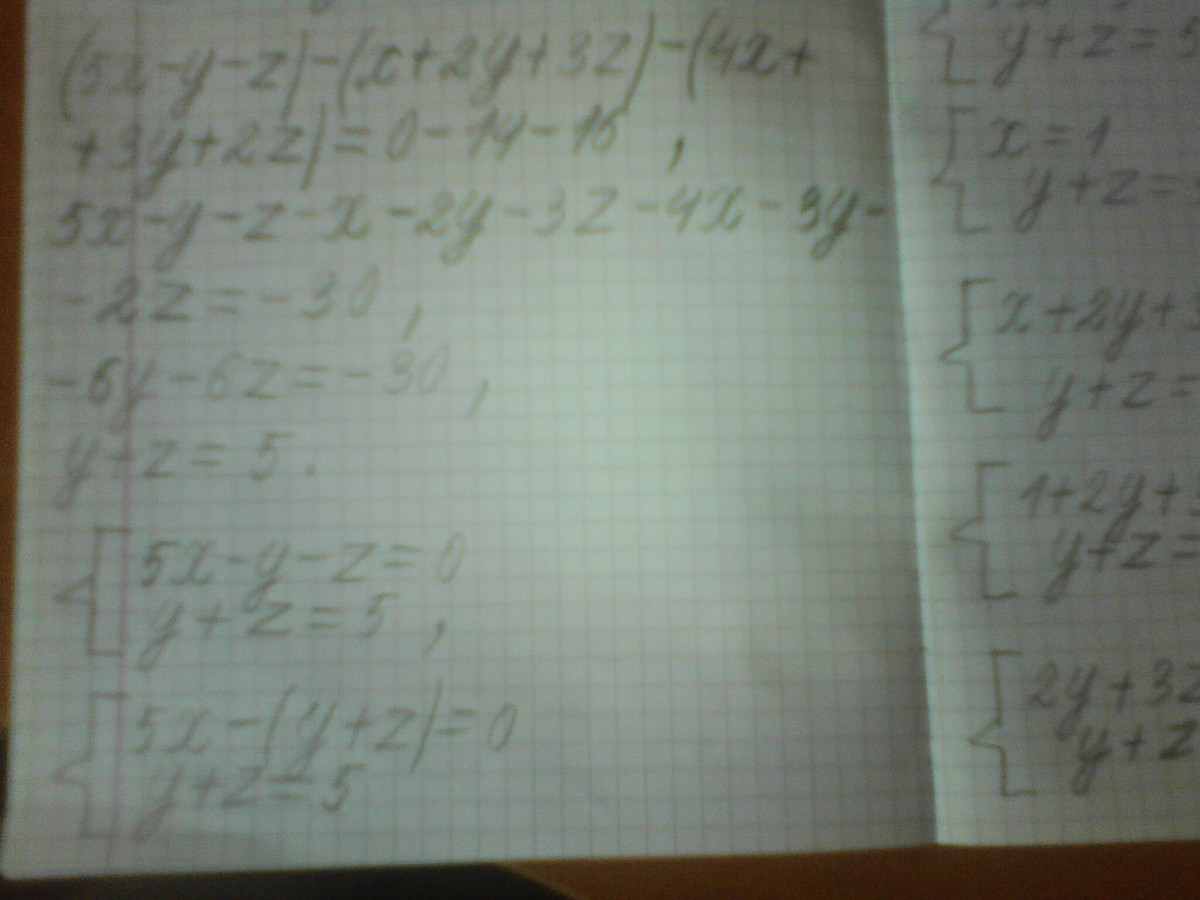 (5x-y-z)-(x+2y+3z)-(4x+
+3y+2z)=0-14-16,
5x-y-z-x-2y-3z-4x-3y-
-2z=-30,
-6y-6z=-30,
y+z=5.
{5x-y-z=0
y+z=5,
{5x-(y+z)=0
y+z=5
y+z=5
{x=1
y+z=
{x+2y+
y+z=
{1+2y+
y+z=
{2y+3z
y+z